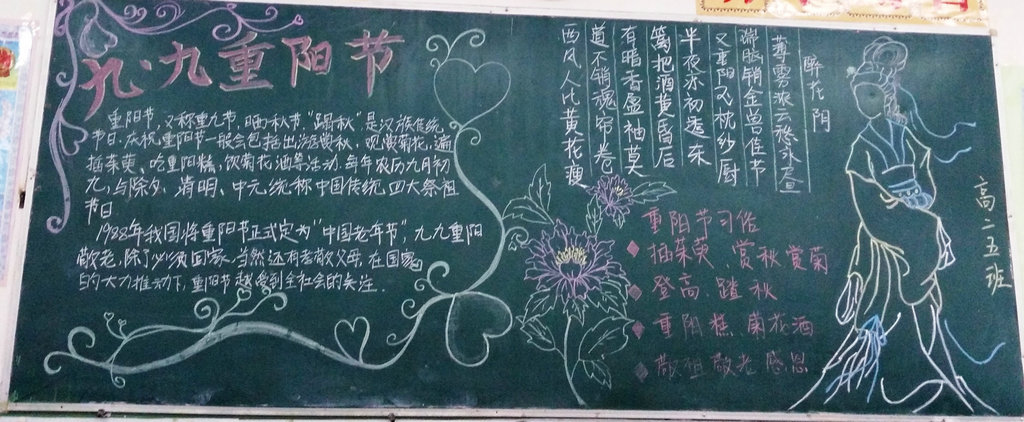 九·九重阳节
重阳节，又称重九节，晒秋节“踏秋”，是汉族传统
节日。庆祝重阳节一般会包括出游赏秋、观赏菊花、遍
插茱萸、吃重阳糕、饮菊花酒等活动，每年农历九月初
九，与除夕、清明、中元，统称中国传统四大祭祖
节日
1988年我国将重阳节正式定为“中国老年节”，九九重阳
敬老，除了必须回家，当然还有孝敬父母，在国家
的大力推动下，重阳节越受到全社会的关注。
醉花阴
薄雾浓云愁永昼
瑞脑销金兽佳节
又重阳玉枕纱厨
半夜凉初透东
篱把酒黄昏后
有暗香盈袖莫
道不销魂帘卷
西风人比黄花瘦
重阳节习俗
插茱萸、赏秋赏菊
登高、踏秋
重阳糕、菊花酒
敬祖敬老感恩
高二五班